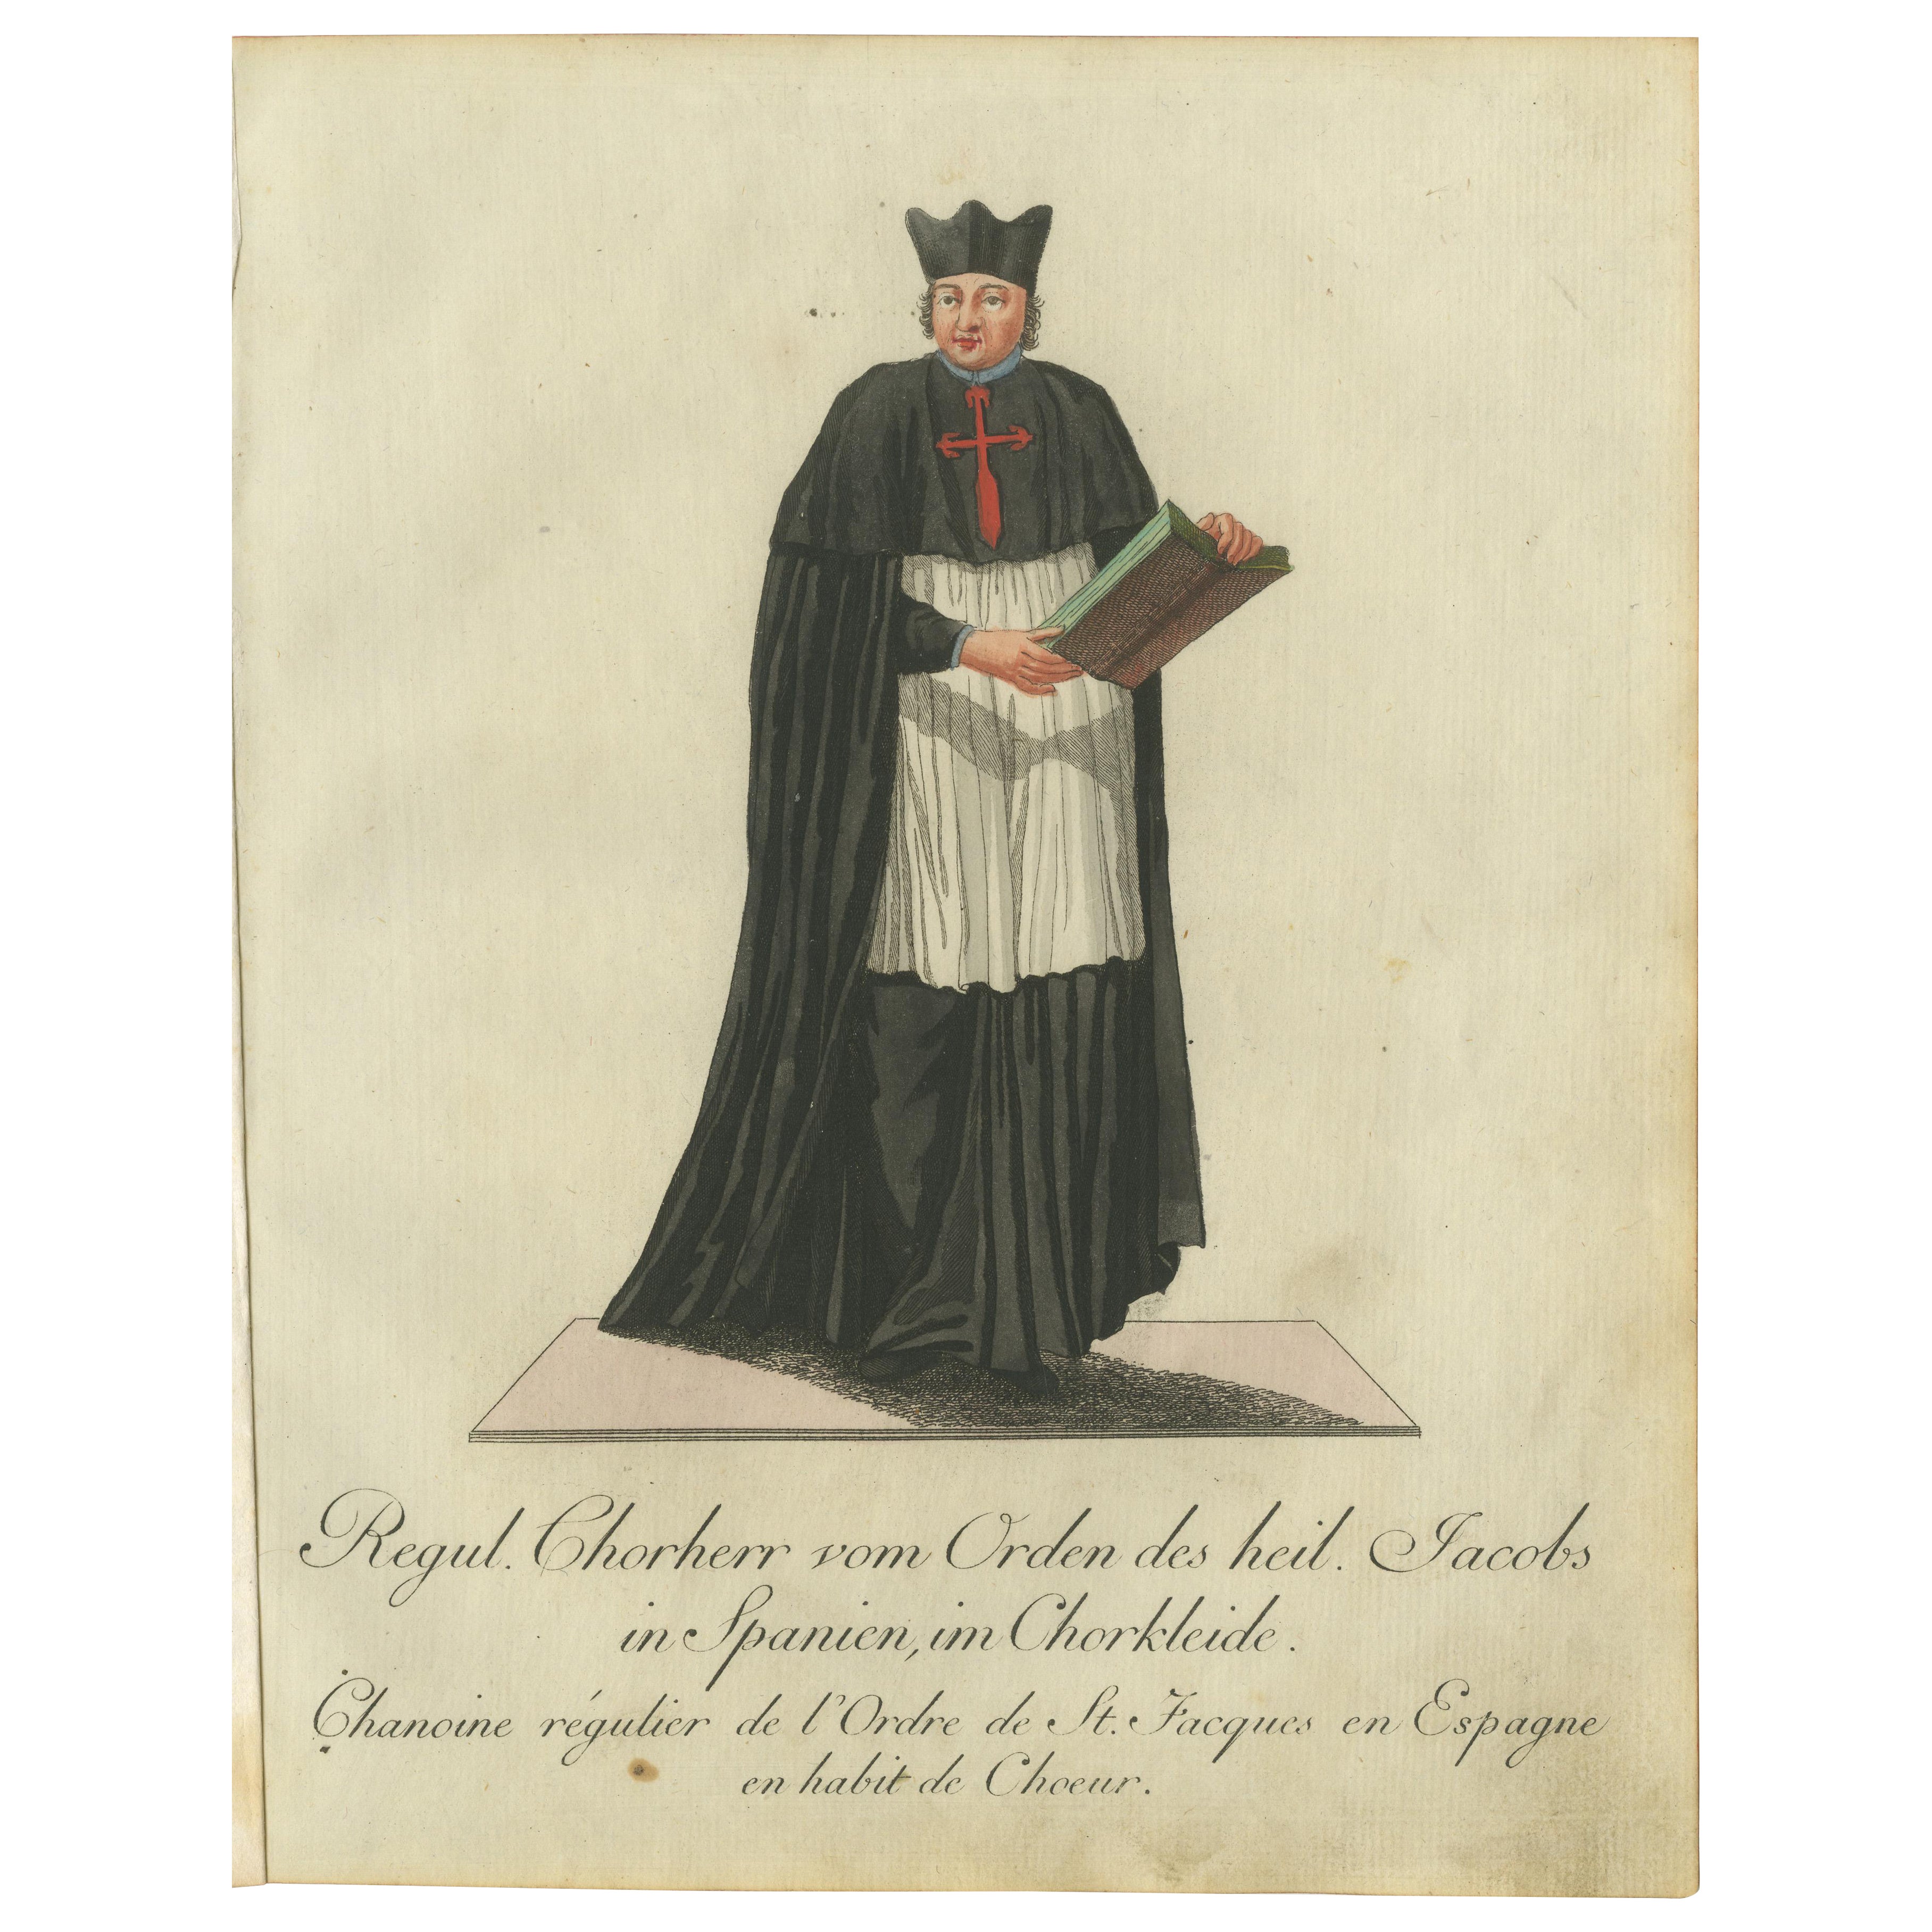 Regul. Chorherr vom Orden des heil. Jacobs
in Spanien, im Chorkleide.
Chanoine régulier de l'Ordre de St. Jacques en Espagne
en habit de Choeur.